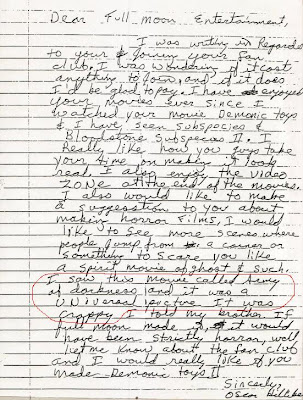 Dear Full moon Entertainment,
I was writing in Regards
to your & joining your fan
club. I was wondering if it cost
anything to join, and if it does
I'd be glad to pay. I have enjoyed
your movies ever since I
watched your movie Demonic toys
& I have seen Subspecies &
Bloodstone Subspecies II. I
Really like how you guys take
your time on making it look
real. I also enjoy the video
ZONE at the end of the movies.
I also would like to make
a suggestion to you about
makin horror films, I would
like to see more scenes where
people jump from a corner or
something to scare you like
a spirit movie of ghost & such.
I saw this movie called Army
of darkness and it was a
Universal picture It was
crappy I told my brother. If
full moon made it, it would
have been strictly horror, well
let me know about the fan club
and I would really like if you
made Demonic toys II
Sincerely,
Oscar